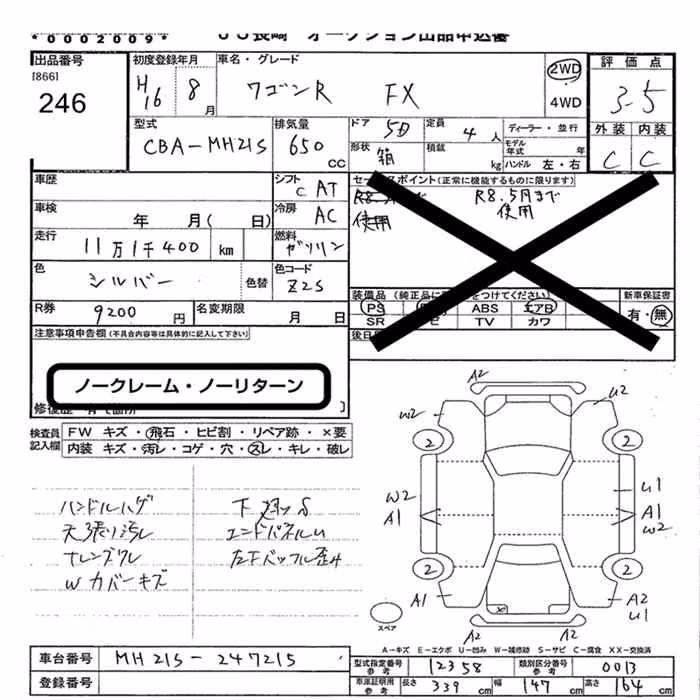 *0002009* JU長崎 オークション出品申込書
出品番号 初度登録年月 車名・グレード 評価点
[866] 2WD
246 H16 8月 ワゴンR FX 4WD 3.5
型式 排気量 ドア 5D 定員 4人 ディーラー・並行 外装 内装
CBA-MH21S 650cc 形状 箱 積載 kg モデル年式 年 ハンドル 左・右 C C
車歴 シフト C AT セールスポイント(正常に機能するものに限ります)
車検 年 月( 日) 冷房 AC R8.5月まで
使用
走行 11万1千400 km 燃料 ガソリン
色 シルバー 色替 色コード Z2S
装備品 (純正品に をつけてください) 新車保証書
PS ABS エアB 有・無
SR TV カワ
R券 9200円 名変期限 月 日 後日
注意事項申告欄(不具合内容等は具体的に記入して下さい)
ノークレーム・ノーリターン
修復歴
検査員記入欄 FW キズ・飛石・ヒビ割・リペア跡・×要
内装 キズ・汚レ・コゲ・穴・スレ・キレ・破レ
ハンドルハゲ 下廻りS
天張り汚レ エンドパネルU
ナレンズワレ 左下バッフル歪み
Wカバーキズ
A2 U2
W2
2 2
W2 U1
A1 A1
W2
2 2
A1 A2
U1
スペア A2 A2
A-キズ E-エクボ U-凹み W-補修跡 S-サビ C-腐食 XX-交換済
車台番号 MH21S-247215 型式指定番号 参考 12358 類別区分番号 参考 0013
登録番号 車庫証明用 参考 長さ 339cm 幅 147cm 高さ 164cm